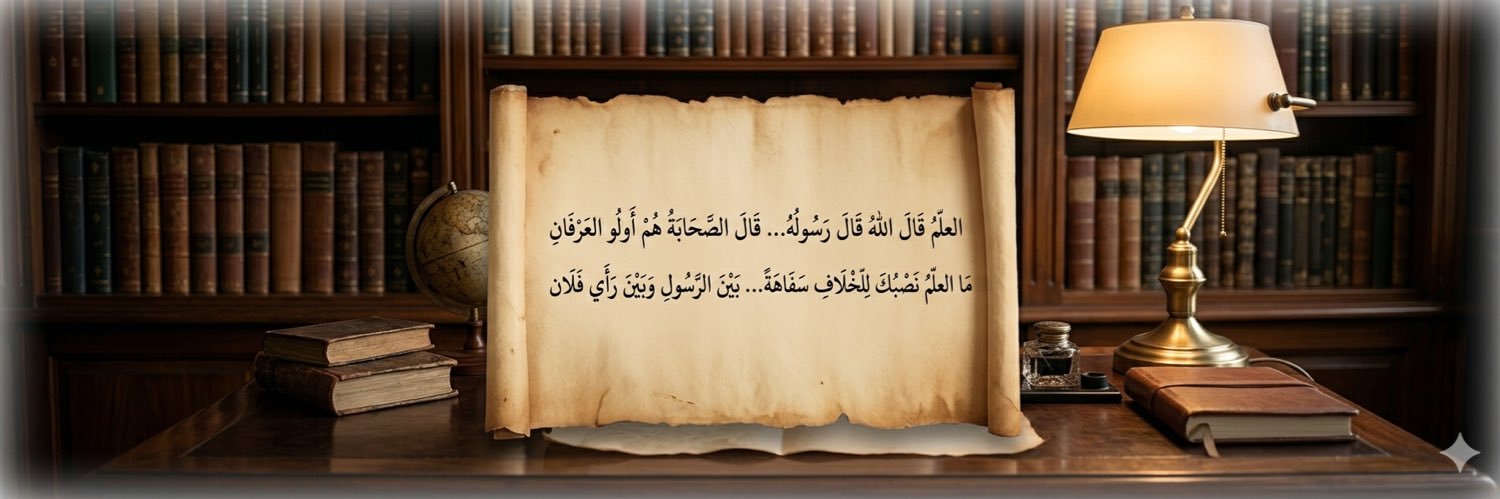 العلّمُ قَالَ اللهُ قَالَ رَسُولُهُ... قَالَ الصَّحَابَةُ هُمْ أَولُو العَرْفَانِ
مَا العلّمُ نَصْبُكَ لِلّخْلَافِ سَفَاهَةً... بَيْنَ الرَّسُولِ وَبَيْنَ رَأَي فَلَان